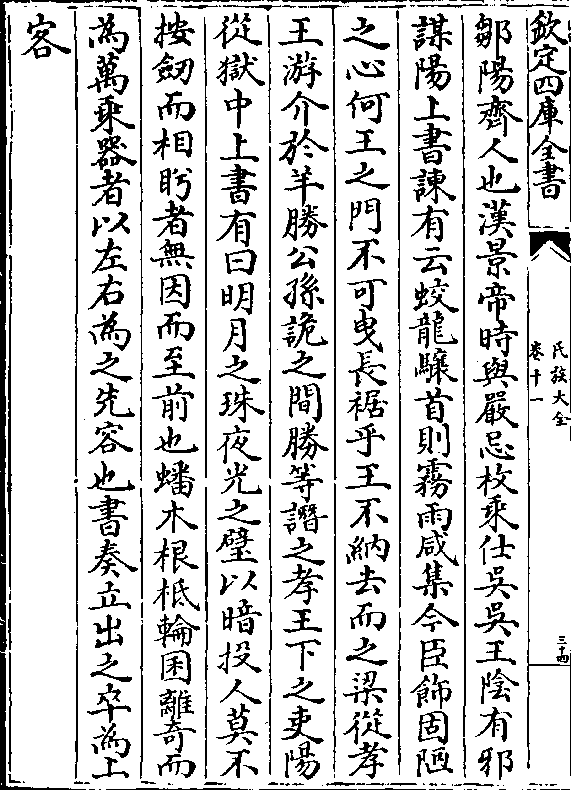 欽定四庫全書
民族大全
卷十一
三十四
鄒陽齊人也漢景帝時與嚴忌枚乘仕吳吳王陰有邪
謀陽上書諫有云蛟龍驤首則霧雨咸集今臣飾固陋
之心何王之門不可曳長裾乎王不納去而之梁從孝
王游介於羊勝公孫詭之間勝等譖之孝王下之吏陽
從獄中上書有曰明月之珠夜光之璧以暗投人莫不
按劒而相眄者無因而至前也蟠木根柢輪囷離奇而
為萬乘器者以左右為之先容也書奏立出之卒為上
客